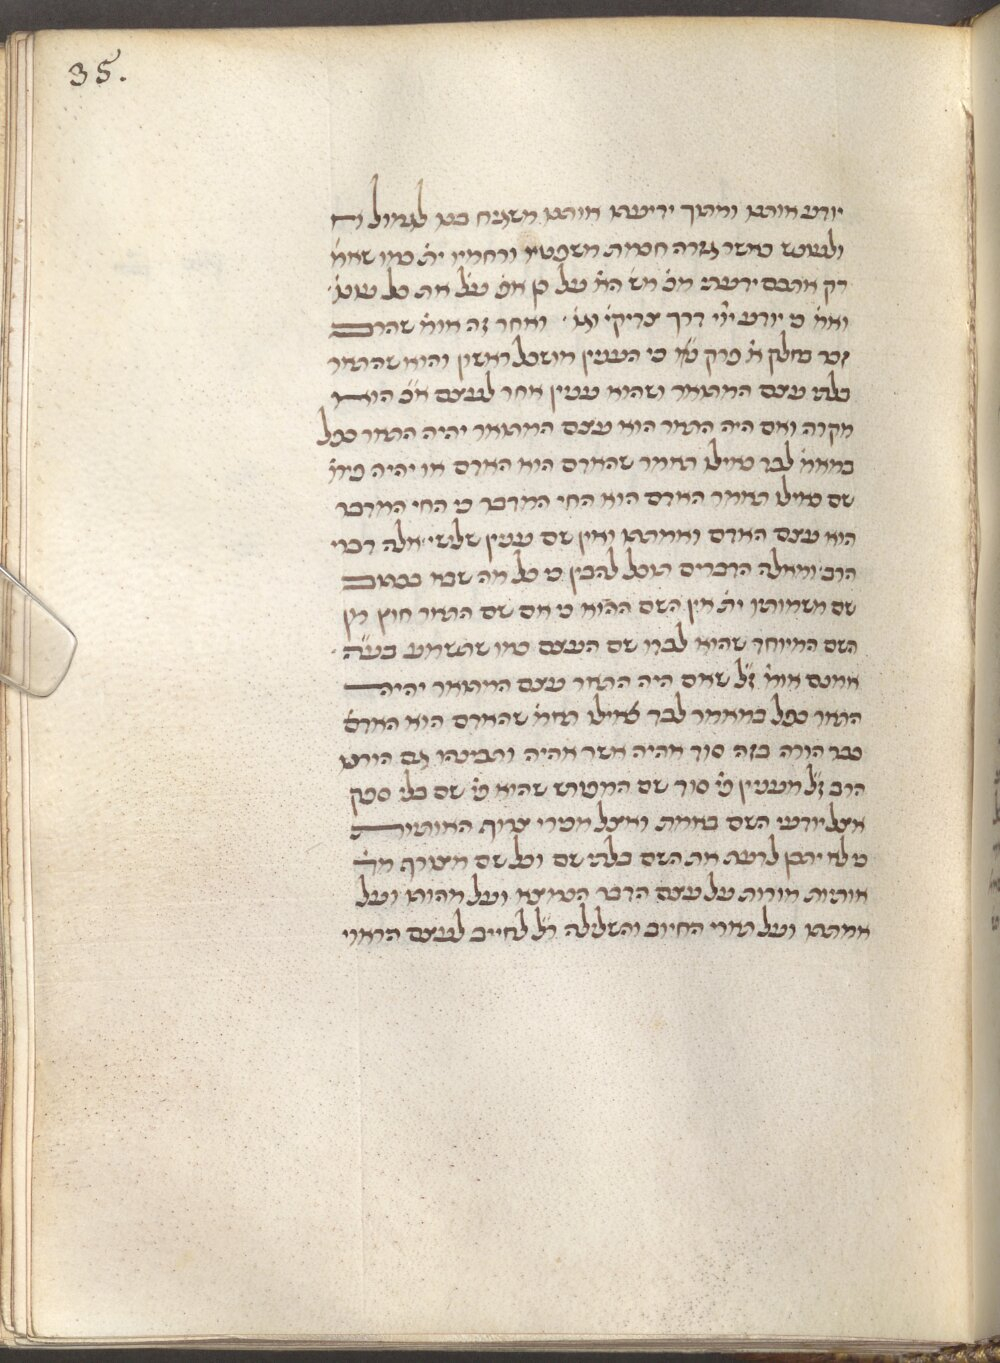 35.
יודע אותם ומתוך ידיעתו אותם משגיח בם לגמול
ולעונש כאשר גזרה חכמת משפטיו ורחמיו ית׳ כמו שאמ׳
רק אתכם ידעתי מכ׳ מש׳ הא׳ על כן אפ׳ על׳ את כל עונ׳
ואמ׳ כי יודע ייי דרך צדיקי׳ וגו׳ ואחר זה אומ׳ שהרב
זכר בחלק א׳ פרק כי הענין מושכל ראשון והוא שהתאר
בלתי עצם המתואר ושהוא ענין אחר לעצם א״כ הוא
מקרה ואם היה התאר הוא עצם המתואר יהיה התאר כפל
במאמ׳ לבד כאילו תאמר שהאדם הוא האדם או יהיה פיר׳
שם כאילו תאמר האדם הוא החי המדבר כי החי המדבר
הוא עצם האדם ואמתתו ואין שם ענין שלישי אלה דברי
הרב ומאלה הדברים תוכל להבין כי כל מה שבא בכתוב
שם משמותיו ית׳ אין השם ההוא כי אם שם התאר חוץ מן
השם המיוחד שהוא לבדו שם העצם כמו שתשמע בע״ה
אמנם אומ׳ ז״ל שאם היה התאר עצם המתואר יהיה
התאר כפל במאמר לבד כאילו תאמ׳ שהאדם הוא האדם
כבר הורה בזה סוד אהיה אשר אהיה ותבינהו גם הורנו
הרב ז״ל מענין כי׳ סוד שם המפורש שהוא כי׳ שם בלי ספק
אצל יודעי השם באמת ואצל מכירי צרוף האותיות
כי לא יתכן לדעת את השם בלתי שם וכל שם מצורף מד׳
אותיות מורות על עצם הדבר הנמצא ועל מהותו ועל
אמתתו ועל תארי החיוב והשלילה ר״ל לחייב לעצם הראוי